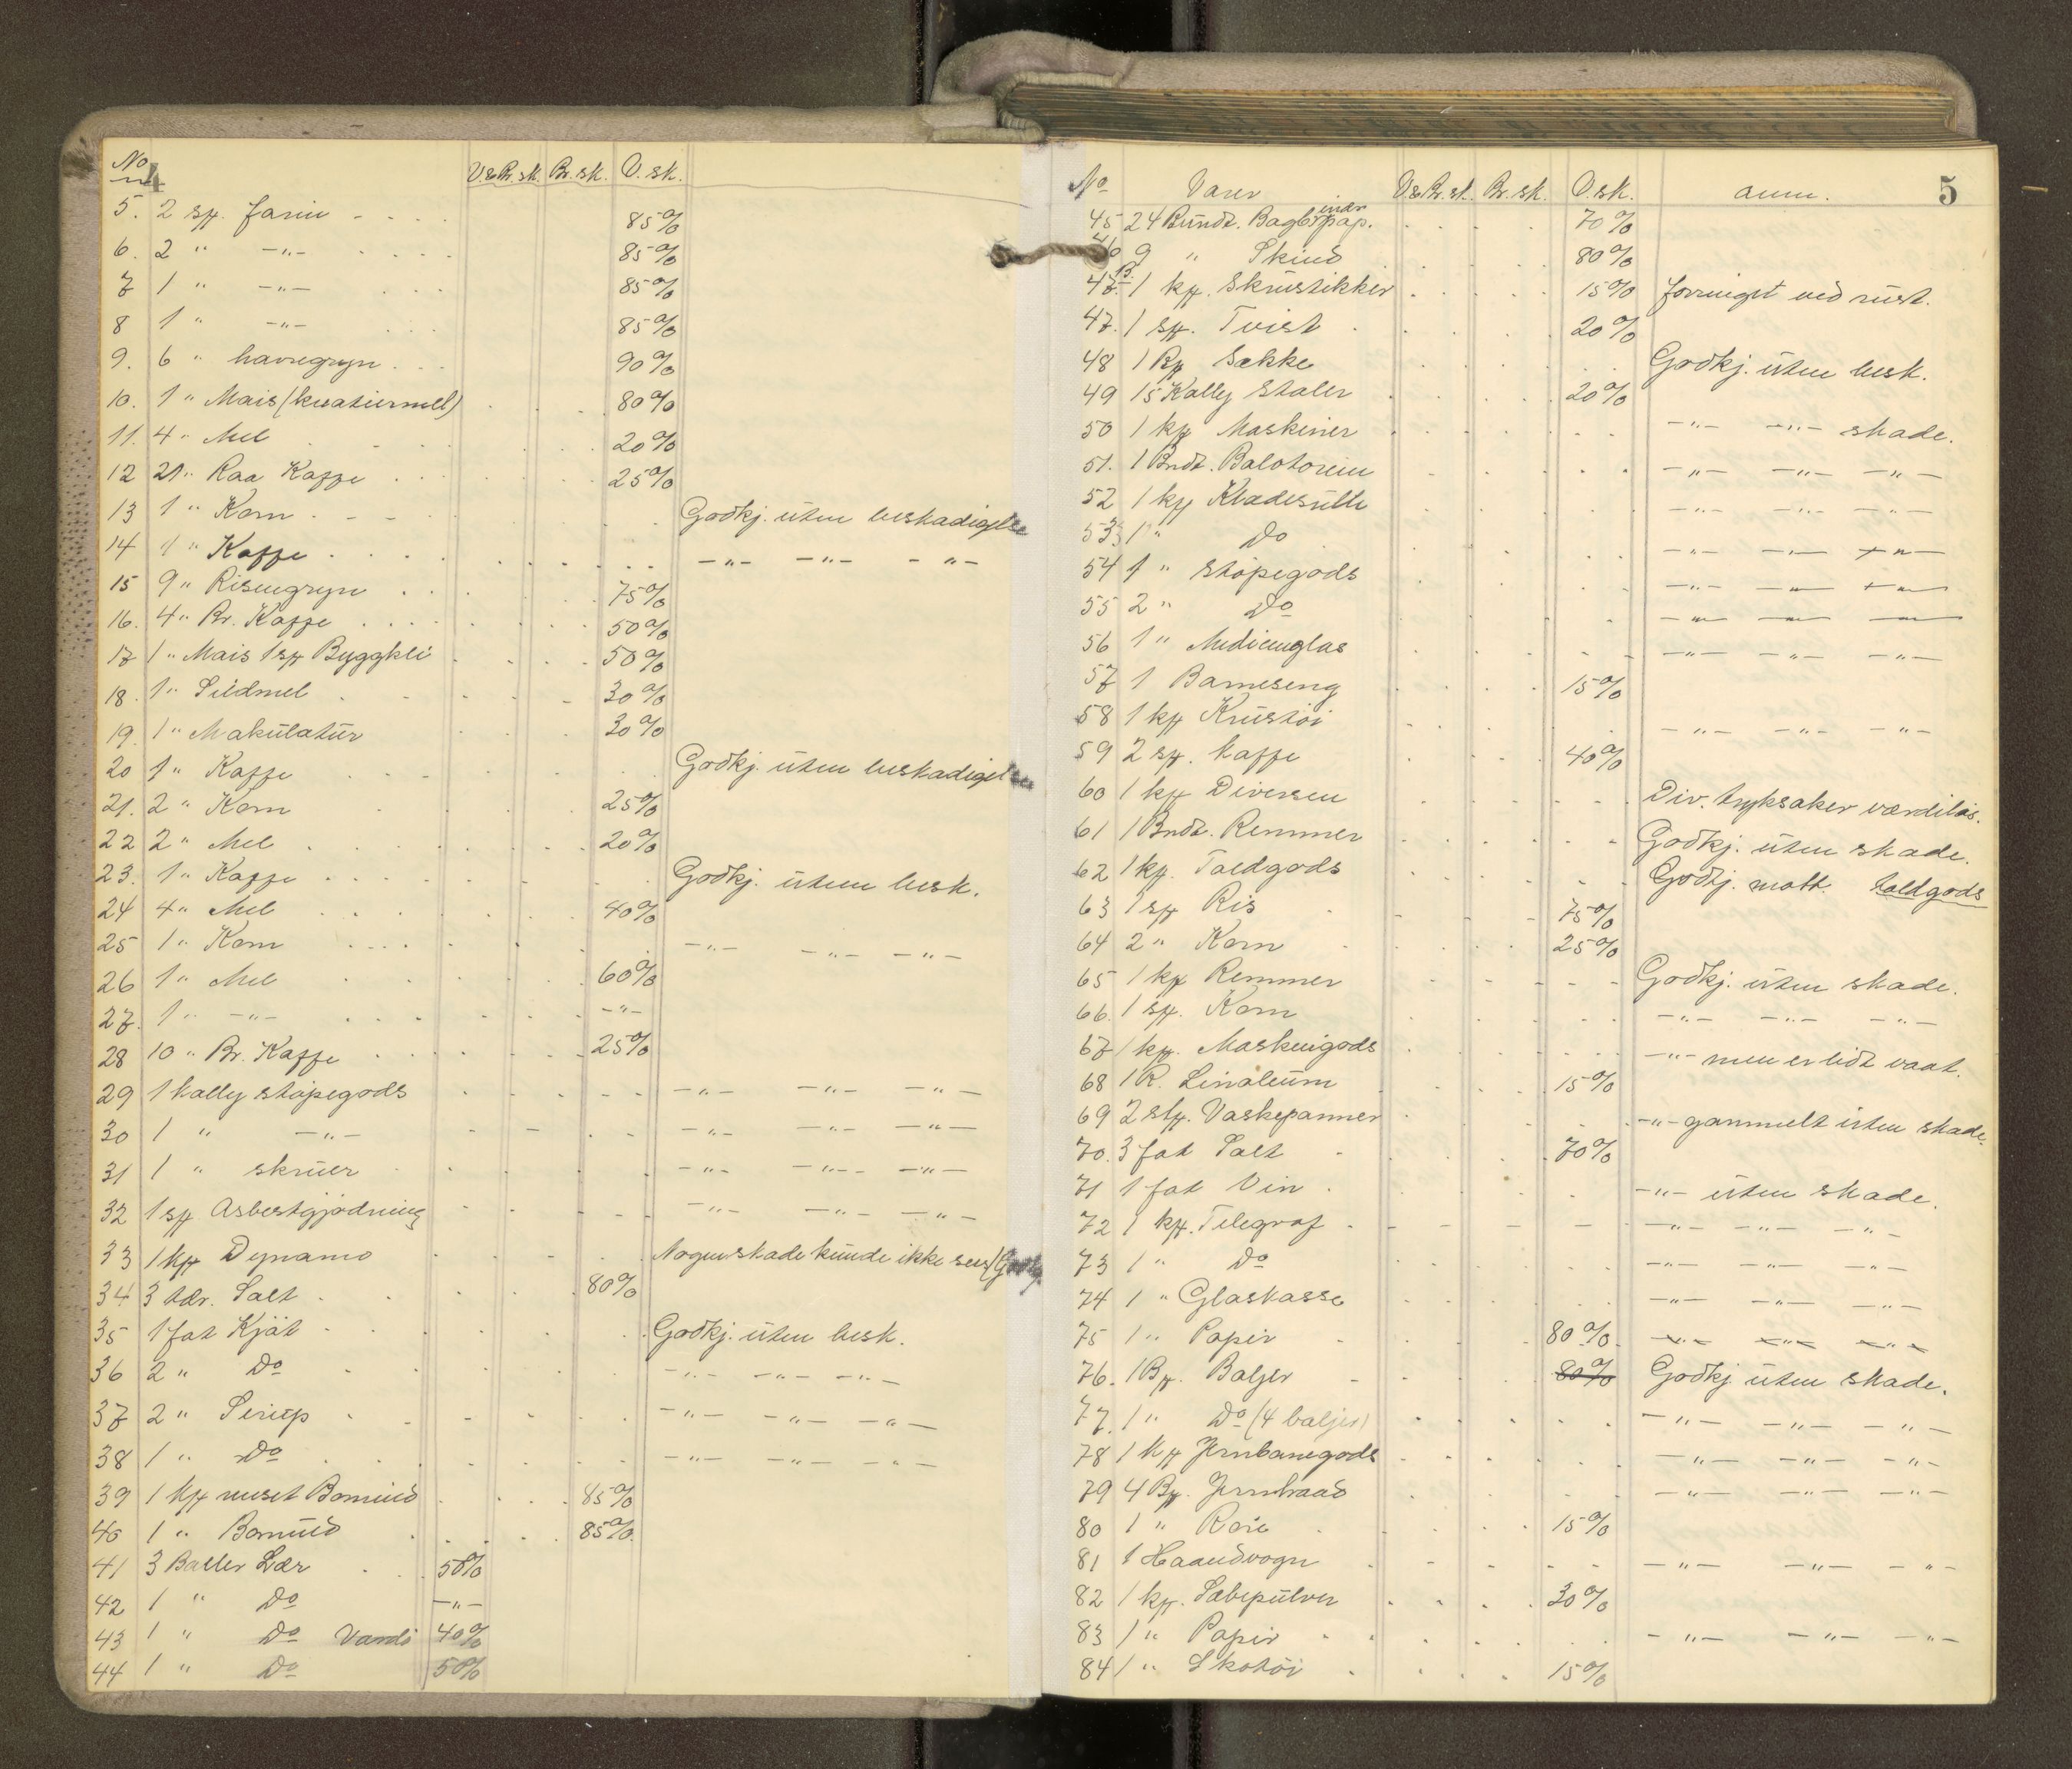 No 4 V.&Br.sk. Br.sk. V.sk.
5. 2 sk. farin - - - - 85%
6. 2 " -"- - - - - 85%
7 1 " -"- - - - 85%
8 1 " -"- - - - 85%
9. 6 " havregryn . . . 90%
10. 1 " Mais (kvatiermel) 80%
11. 4 " Mel 20%
12 21 " Raa Kaffe 25%
13 1 " Korn - - - Godkj. uten beskadigelse
14 1 " Kaffe . . . . -"- -"- -"-
15 9 " Risengryn . . 75%
16. 4 " Br. Kaffe . . . . 50%
17 1 " Mais 1 sk Byggkli 50%
18. 1 " Sildmel 30%
19. 1 " Makulatur 30%
20 1 " Kaffe Godkj. uten beskadigelse
21. 2 " Korn 25%
22 2 " Mel 20%
23. 1 " Kaffe Godkj. uten besk.
24 4 " Mel 40%
25 1 " Korn -"- -"- -"-
26 1 " Mel 60%
27. 1 " -"- -"-
28 10 " Br. Kaffe 25%
29 1 kolly støpegods -"- -"- -"-
30 1 " -"- -"- -"- -"-
31 1 " skruer -"- -"- -"-
32 1 sk Asbestgjødning -"- -"- -"-
33 1 ks Dynamo Nogen skade kunde ikke sees
34 3 tdr. Salt 80%
35 1 fat Kjøt Godkj. uten besk.
36 2 " Do -"- -"- -"-
37 2 " Sirup -"- -"- -"-
38 1 " Do -"- -"- -"-
39 1 ks uuset Bomuld 85%
40 1 " Bomuld 85%
41 3 Baller Lær 50%
42 1 " Do -"-
43 1 " Do Vardø 40%
44 1 " Do 50%
5
No Varer V.&Br.sk. Br.sk. V.sk. anm.
45 24 Bundt. 70%
46 9 " Skind 80%
47B. 1 ks. Skrustikker 15% forringet ved rust.
47. 1 sk. Tvist 20%
48 1 Bt Sække Godkj. uten besk.
49 15 Kolly Staler 20%
50 1 ks Maskiner -"- -"- skade.
51. 1 Bndt. -"- -"- -"-
52 1 ks Kladesulle -"- -"- -"-
53 1 " Do -"- -"- -"-
54 1 " Støpegods -"- -"- -"-
55 2 " Do -"- -"- -"-
56 1 " Medicinglas -"- -"- -"-
57 1 Barneseng 15%
58 1 ks Krustøi -"- -"- -"-
59 2 sk. kaffe 40%
60 1 ks Diversen Div. tryksaker værdiløs.
61 1 Bndt. Remmer Godkj. uten skade.
62 1 ks. Toldgods Godkj. mott. toldgods
63 1 sk Ris 75%
64 2 " Korn 25%
65 1 ks Remmer Godkj. uten skade.
66. 1 sk. Korn -"- -"- -"-
67 1 ks. Maskingods -"- men er lidt vaat.
68 1 R. Linoleum 15%
69 2 stk. Vaskepanner -"- gammelt uten skade.
70. 3 fat Salt 70%
71 1 fat Vin -"- uten skade.
72 1 ks. Telegraf -"- -"- -"-
73 1 " Do -"- -"- -"-
74 1 " Glaskasse -"- -"- -"-
75 1 " Papir 80%. -"- -"- -"-
76. 1 Bt. Baljer 80% Godkj uten skade.
77. 1 " Do (4 baljer) -"- -"- -"-
78 1 ks Jernbanegods -"- -"- -"-
79 4 Bt. Jerntraad -"- -"- -"-
80 1 " 15%
81 1 Haandvogn -"- -"- -"-
82 1 ks. Sæbepulver 30%
83 1 " Papir -"- -"- -"-
84 1 " Skotøi 15%